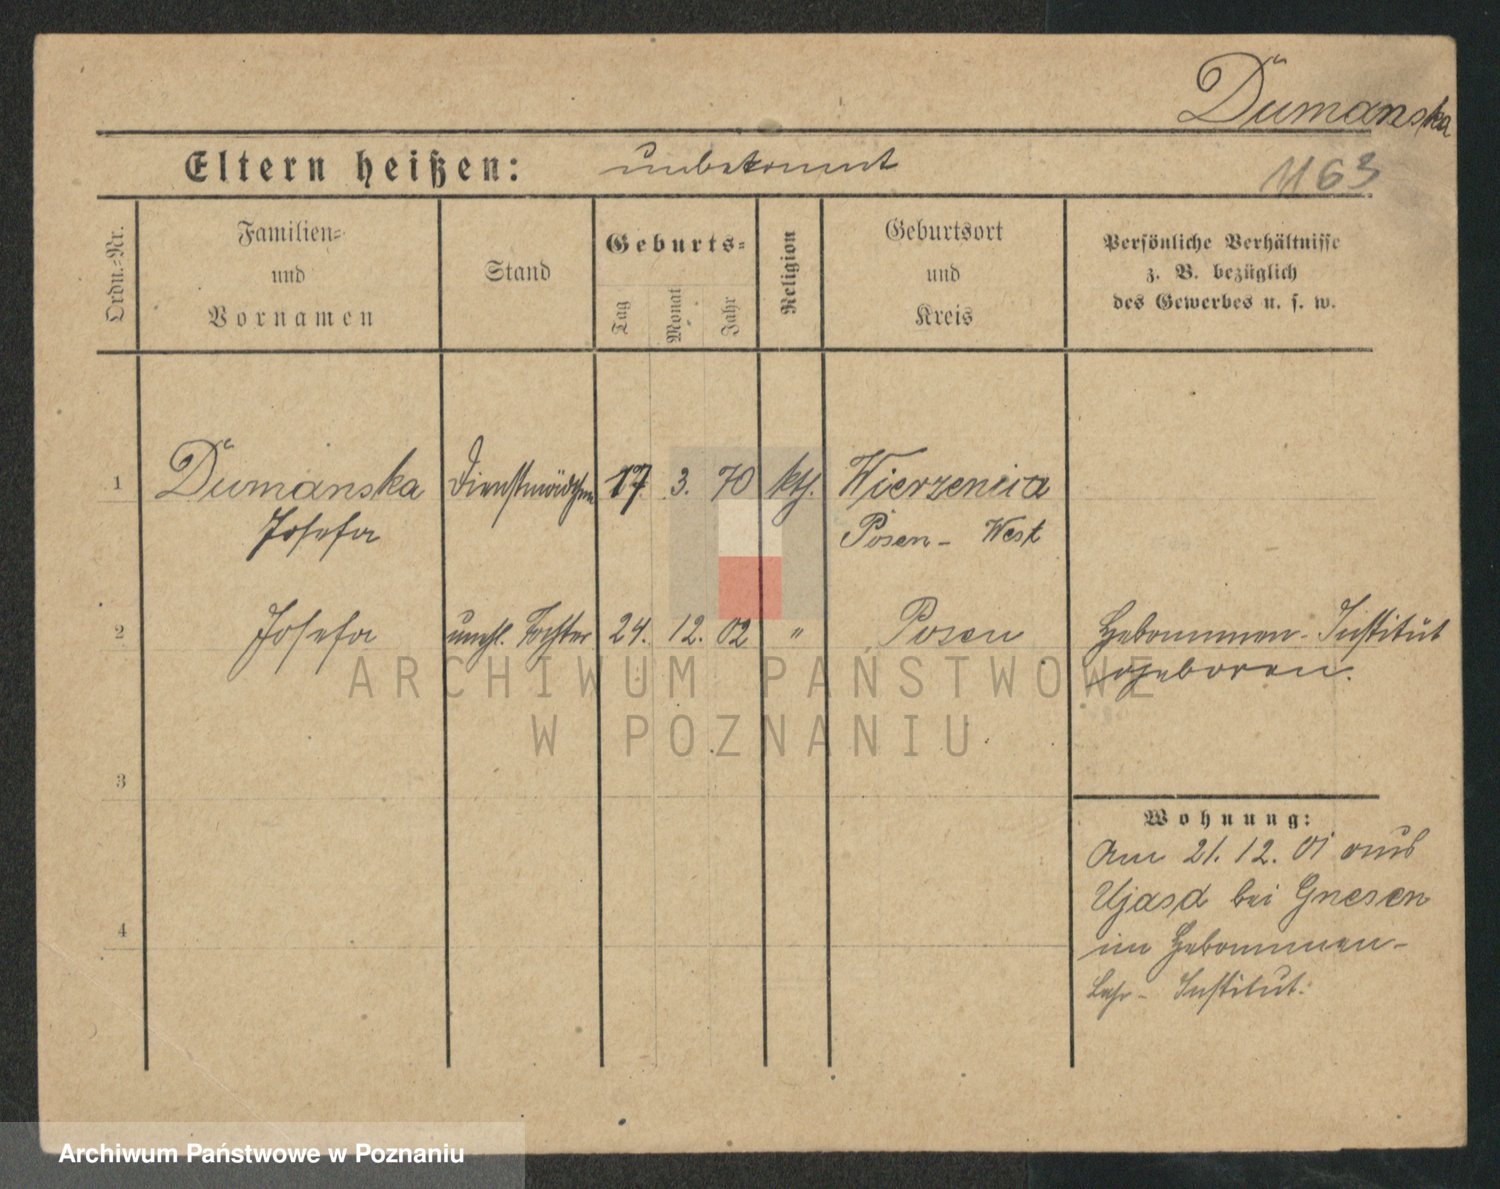 Dumanska
Eltern heißen: unbekannt
1163
Ordn.-Nr.
Familien-
und
Vornamen
Stand
Geburts-
Tag
Monat
Jahr
Religion
Geburtsort
und
Kreis
Persönliche Verhältnisse
z. B. bezüglich
des Gewerbes u. s. w.
1 Dumanska Dienstmädchen 17 3. 70 kth. Wierzenica
Josefa Posen - West
2 Josefa unehl. Tochter 24. 12. 02 " Posen Hebammen-Institut
geboren.
ARCHIWUM PAŃSTWOWE
W POZNANIU
3
Wohnung:
Am 21. 12. 01 aus
Ujasd bei Gnesen
4
im Hebammen-
Lehr- Institut.
Archiwum Państwowe w Poznaniu